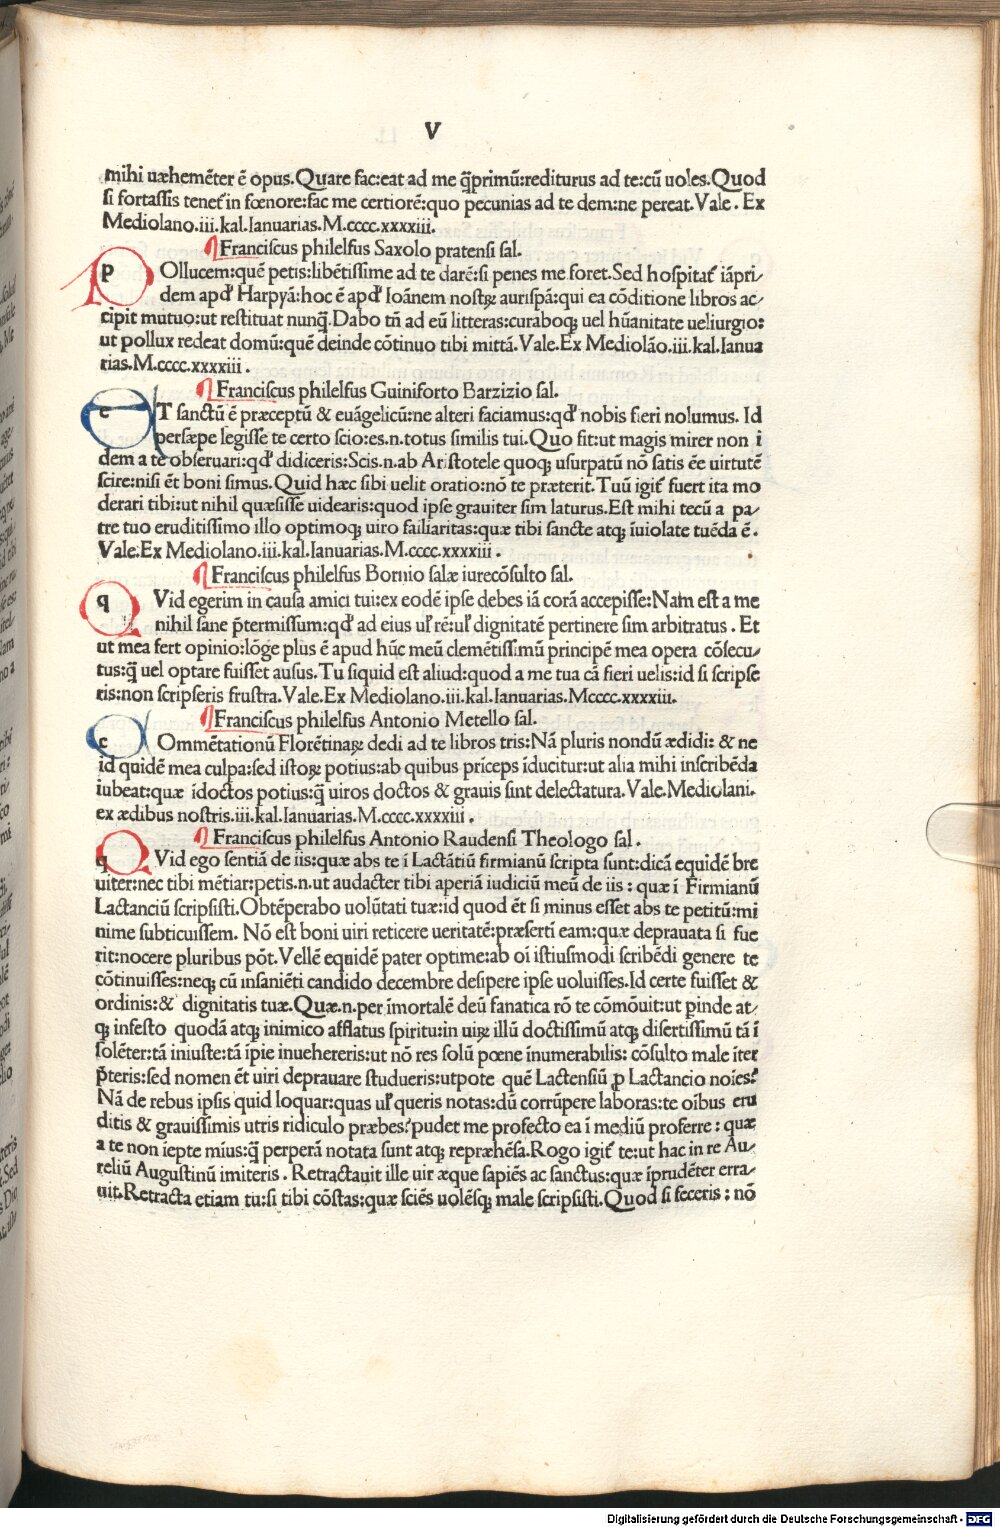 V
mihi uæhemēter ē opus.Quare fac:eat ad me q̄primū:rediturus ad te:cū uoles.Quod
si fortassis tenet᷑ in fœnore:fac me certiorē:quo pecunias ad te dem:ne pereat.Vale. Ex
Mediolano.iii.kal.Ianuarias.M.cccc.xxxxiii.
¶Franciscus philelfus Saxolo pratensi sal.
p Ollucem:quē petis:libētissime ad te darē:si penes me foret.Sed hospitat᷑ iāpri/
dem apd᷒ Harpyā:hoc ē apd᷒ Ioānem nostꝝ aurispā:qui ea cōditione libros ac/
cipit mutuo:ut restituat nunq̄.Dabo tn̄ ad eū litteras:curaboqꝫ uel hūanitate ueliurgio:
ut pollux redeat domū:quē deinde cōtinuo tibi mittā.Vale.Ex Mediolāo.iii.kal.Ianua
rias.M.cccc.xxxxiii.
¶Franciscus philelfus Guiniforto Barzizio sal.
e T sanctū ē præceptū & euāgelicū:ne alteri faciamus:qd᷒ nobis fieri nolumus. Id
persæpe legisse te certo scio:es.n.totus similis tui.Quo fit:ut magis mirer non i
dem a te obseruari:qd᷒ didiceris:Scis.n.ab Aristotele quoqꝫ usurpatū nō satis ēe uirtutē
scire:nisi ēt boni simus.Quid hæc sibi uelit oratio:nō te præterit.Tuū igit᷑ fuert ita mo
derari tibi:ut nihil quæsisse uidearis:quod ipse grauiter sim laturus.Est mihi tecū a pa/
tre tuo eruditissimo illo optimoqꝫ uiro failiaritas:quæ tibi sancte atqꝫ īuiolate tuēda ē.
Vale.Ex Mediolano.iii.kal.Ianuarias.M.cccc.xxxxiii.
¶Franciscus philelfus Bornio salæ iurecōsulto sal.
q Vid egerim in causa amici tui:ex eodē ipse debes iā corā accepisse:Nam est a me
nihil sane p̄termissum:qd᷒ ad eius ul᷒ rē:ul᷒ dignitatē pertinere sim arbitratus. Et
ut mea fert opinio:lōge plus ē apud hūc meū clemētissimū principē mea opera cōsecu/
tus:q̄ uel optare fuisset ausus.Tu siquid est aliud:quod a me tua cā fieri uelis:id si scripse
ris:non scripseris frustra.Vale.Ex Mediolano.iii.kal.Ianuarias.Mcccc.xxxxiii.
¶Franciscus philelfus Antonio Metello sal.
c Ommētationū Florētinaꝝ dedi ad te libros tris:Nā pluris nondū ædidi: & ne
id quidē mea culpa:sed istoꝝ potius:ab quibus prīceps īducitur:ut alia mihi inscribēda
iubeat:quæ īdoctos potius:q̄ uiros doctos & grauis sint delectatura.Vale.Mediolani.
ex ædibus nostris.iii.kal.Ianuarias.M.cccc.xxxxiii.
¶Franciscus philelfus Antonio Raudensi Theologo sal.
q Vid ego sentiā de iis:quæ abs te ī Lactātiū firmianū scripta sunt:dicā equidē bre
uiter:nec tibi mētiar:petis.n.ut audacter tibi aperiā iudiciū meū de iis: quæ ī Firmianū
Lactanciū scripsisti.Obtēperabo uolūtati tuæ:id quod ēt si minus esset abs te petitū:mi
nime subticuissem. Nō est boni uiri reticere ueritatē:præsertī eam:quæ deprauata si fue
rit:nocere pluribus pōt.Vellē equidē pater optime:ab oī istiusmodi scribēdi genere te
cōtinuisses:neqꝫ cū insaniēti candido decembre desipere ipse uoluisses.Id certe fuisset &
ordinis:& dignitatis tuæ.Quæ.n.per īmortalē deū fanatica rō te cōmōuit:ut pinde at/
qꝫ infesto quodā atqꝫ inimico afflatus spiritu:in uiꝝ illū doctissimū atqꝫ disertissimū tā ī
solēter:tā iniuste:tā īpie inuehereris:ut nō res solū pœne īnumerabilis: cōsulto male īter
p̄teris:sed nomen ēt uiri deprauare studueris:utpote quē Lactensiū ꝓ Lactancio noīes?
Nā de rebus ipsis quid loquar:quas ul᷒ queris notas:dū corrūpere laboras:te oībus eru
ditis & grauissimis utris ridiculo præbes?pudet me profecto ea ī mediū proferre: quæ
a te non iepte mius:q̄ perperā notata sunt atqꝫ repræhēsa.Rogo igit᷑ te:ut hac in re Au/
reliū Augustinū imiteris. Retractauit ille uir æque sapiēs ac sanctus:quæ īprudēter erra/
uit.Retracta etiam tu:si tibi cōstas:quæ sciēs uolēsqꝫ male scripsisti.Quod si feceris: nō
Digitalisierung gefördert durch die Deutsche Forschungsgemeinschaft - DFG